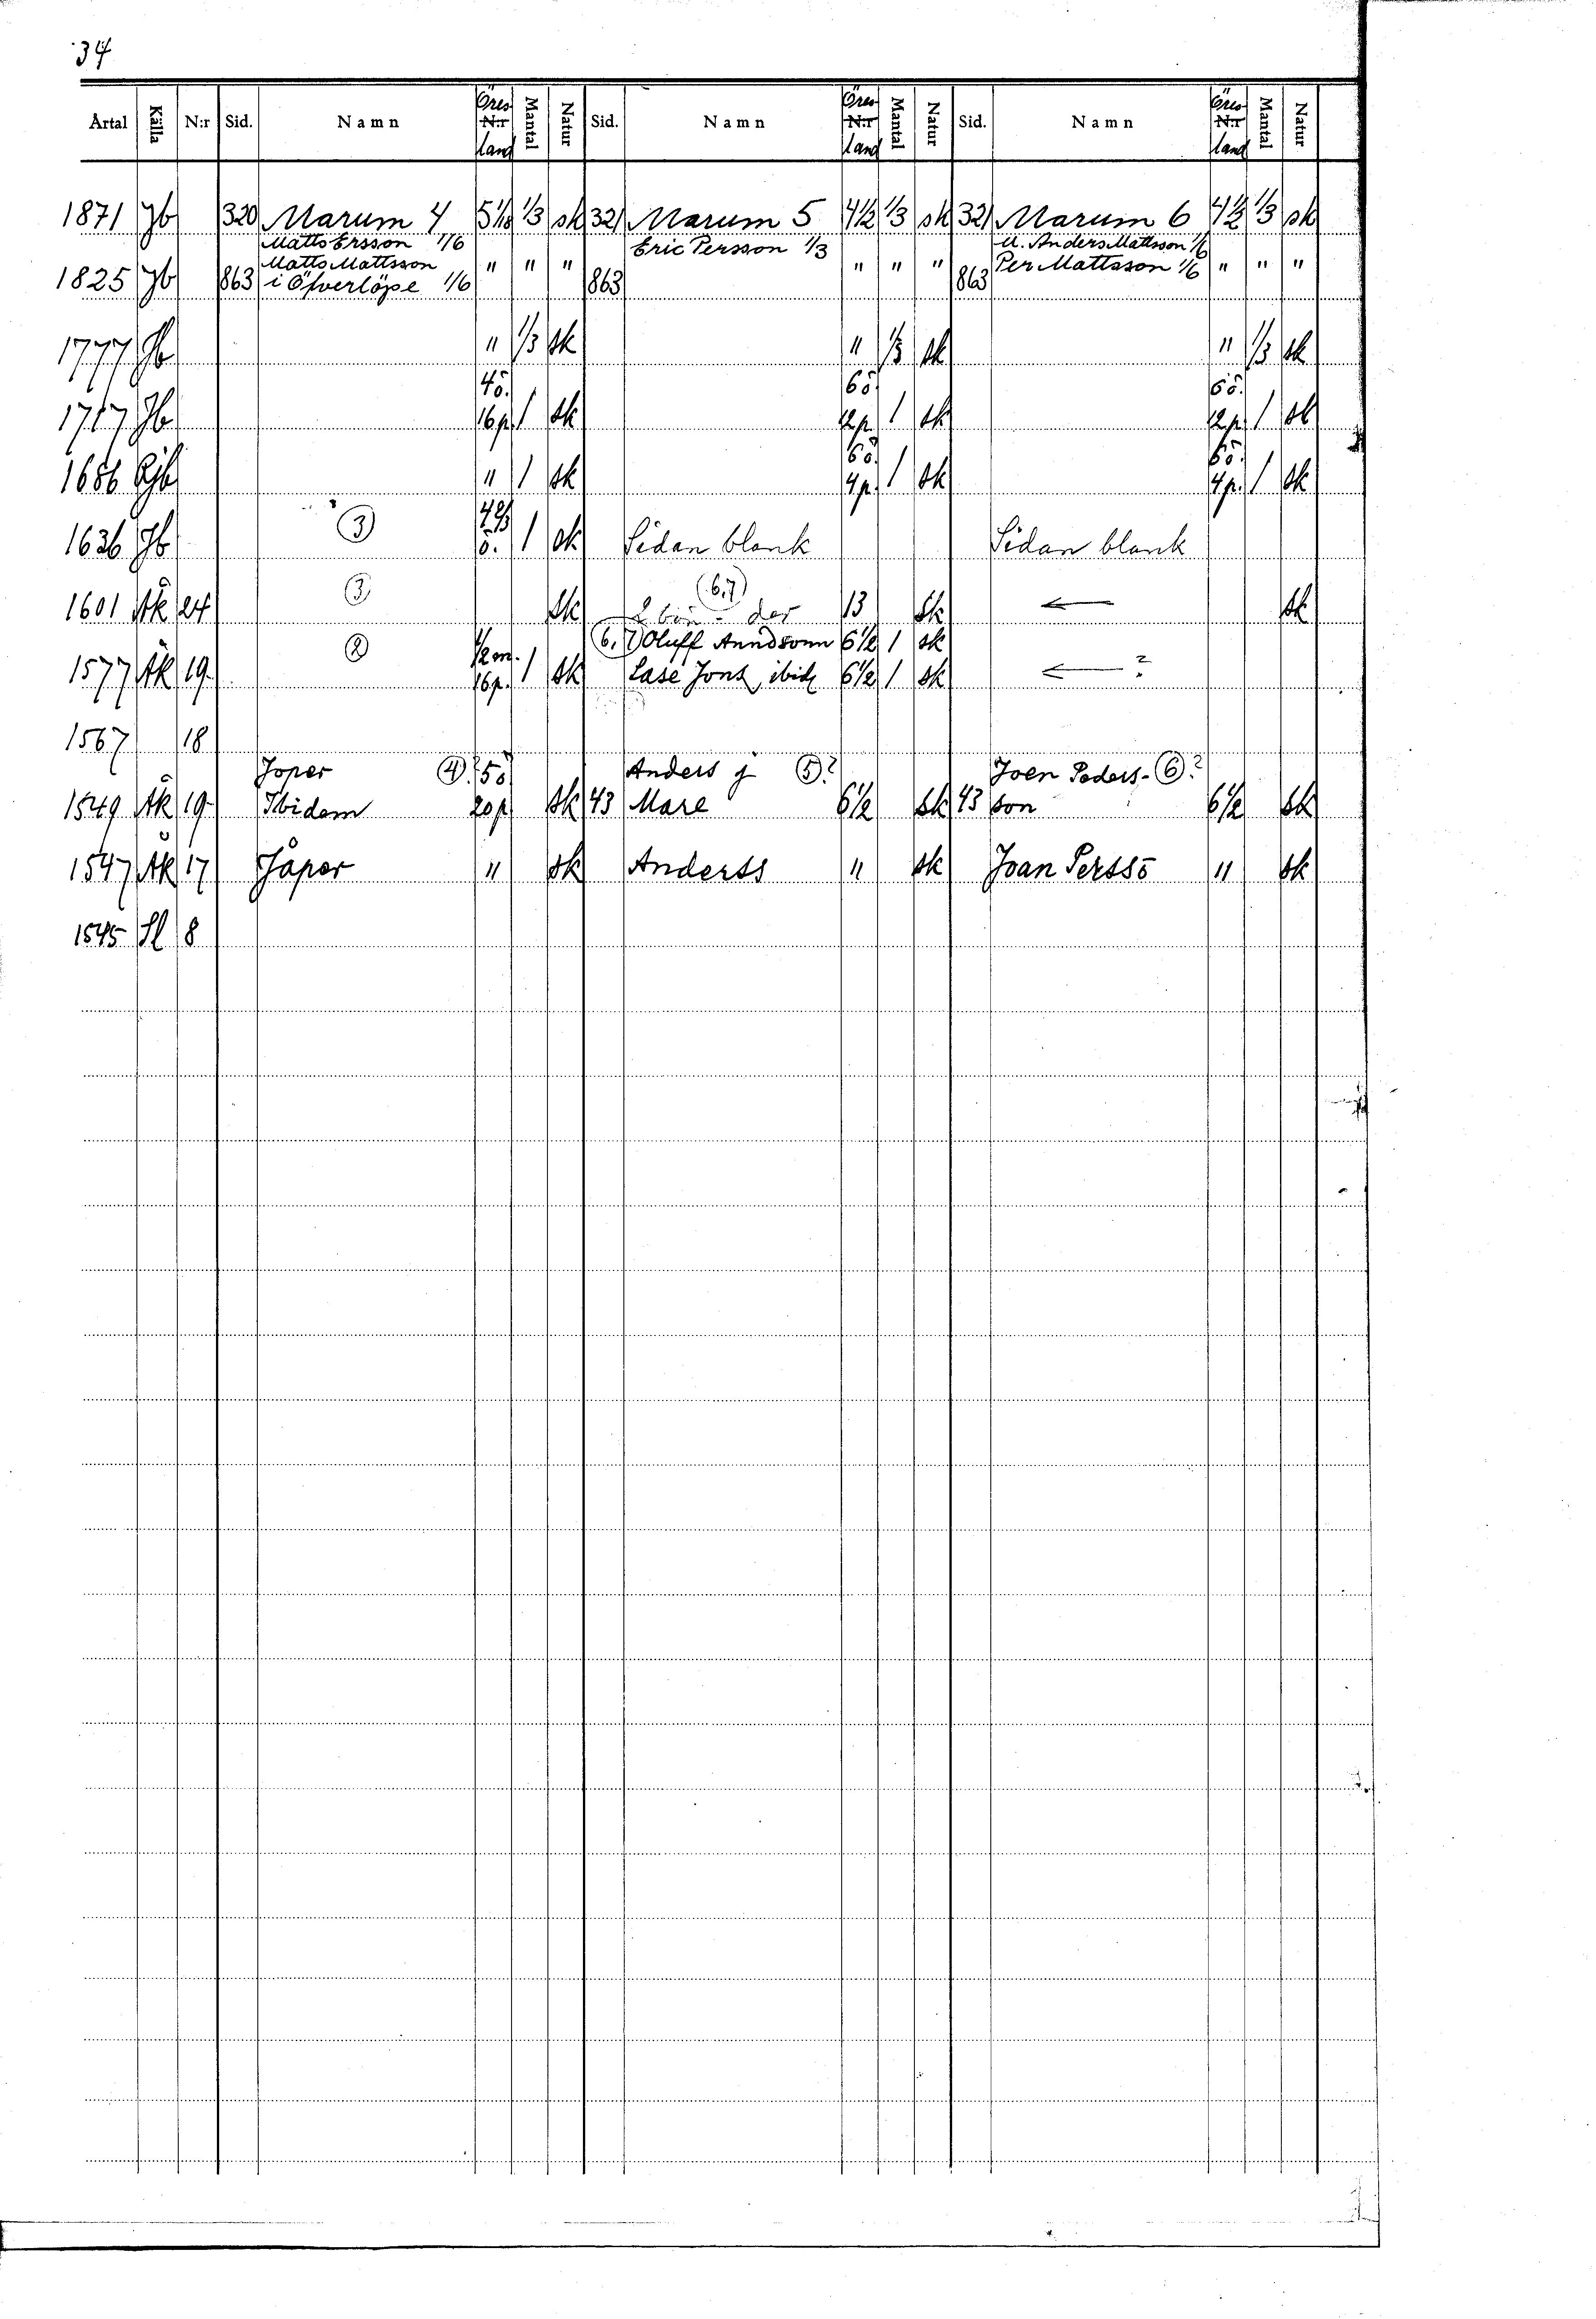 34
Årtal Källa N:r Sid. Namn Öres N:r land Mantal Natur Sid. Namn Öres N:r land Mantal Natur Sid. Namn Öres N:r land Mantal Natur
1871 Jb 320 Marum 4 5 1/18 1/3 sk 321 Marum 5 4 1/2 1/3 sk 321 Marum 6 4 1/2 1/3 sk
Matts Ersson 1/6 Eric Persson 1/3 U. Anders Mattsson 1/6
Matts Mattsson Per Mattsson 1/6
1825 Jb 863 i Öfverlöpe 1/6 " " " 863 " " " 863 " " "
1777 Jb " 1/3 sk " 1/3 sk " 1/3 sk
4ö. 6ö. 6ö.
1717 Jb 16p. 1 sk 12p. 1 sk 12p. 1 sk
6ö. 6ö.
1686 " 1 sk 4p. 1 sk 4p. 1 sk
1636 Jb (3) 4 2/3 ö. 1 sk Sidan blank Sidan blank
(6,7)
1601 Åk 24 (3) sk 2 bön-der 13 sk ← sk
(2) 1/2 m. (6,7) Oluff Anndsonn 6 1/2 1 sk
1577 Åk 19 16p. 1 sk Lase Jons ibid 6 1/2 1 sk ← ?
1567 18
Joper (4)? 5ö Anders j (5)? Joen Peders- (6)?
1549 Åk 19 Ibidem 20p sk 43 Mare 6 1/2 sk 43 son 6 1/2 sk
1547 Åk 17 Jåper " sk Anderss " sk Joan Perssō " sk
1545 Sl 8